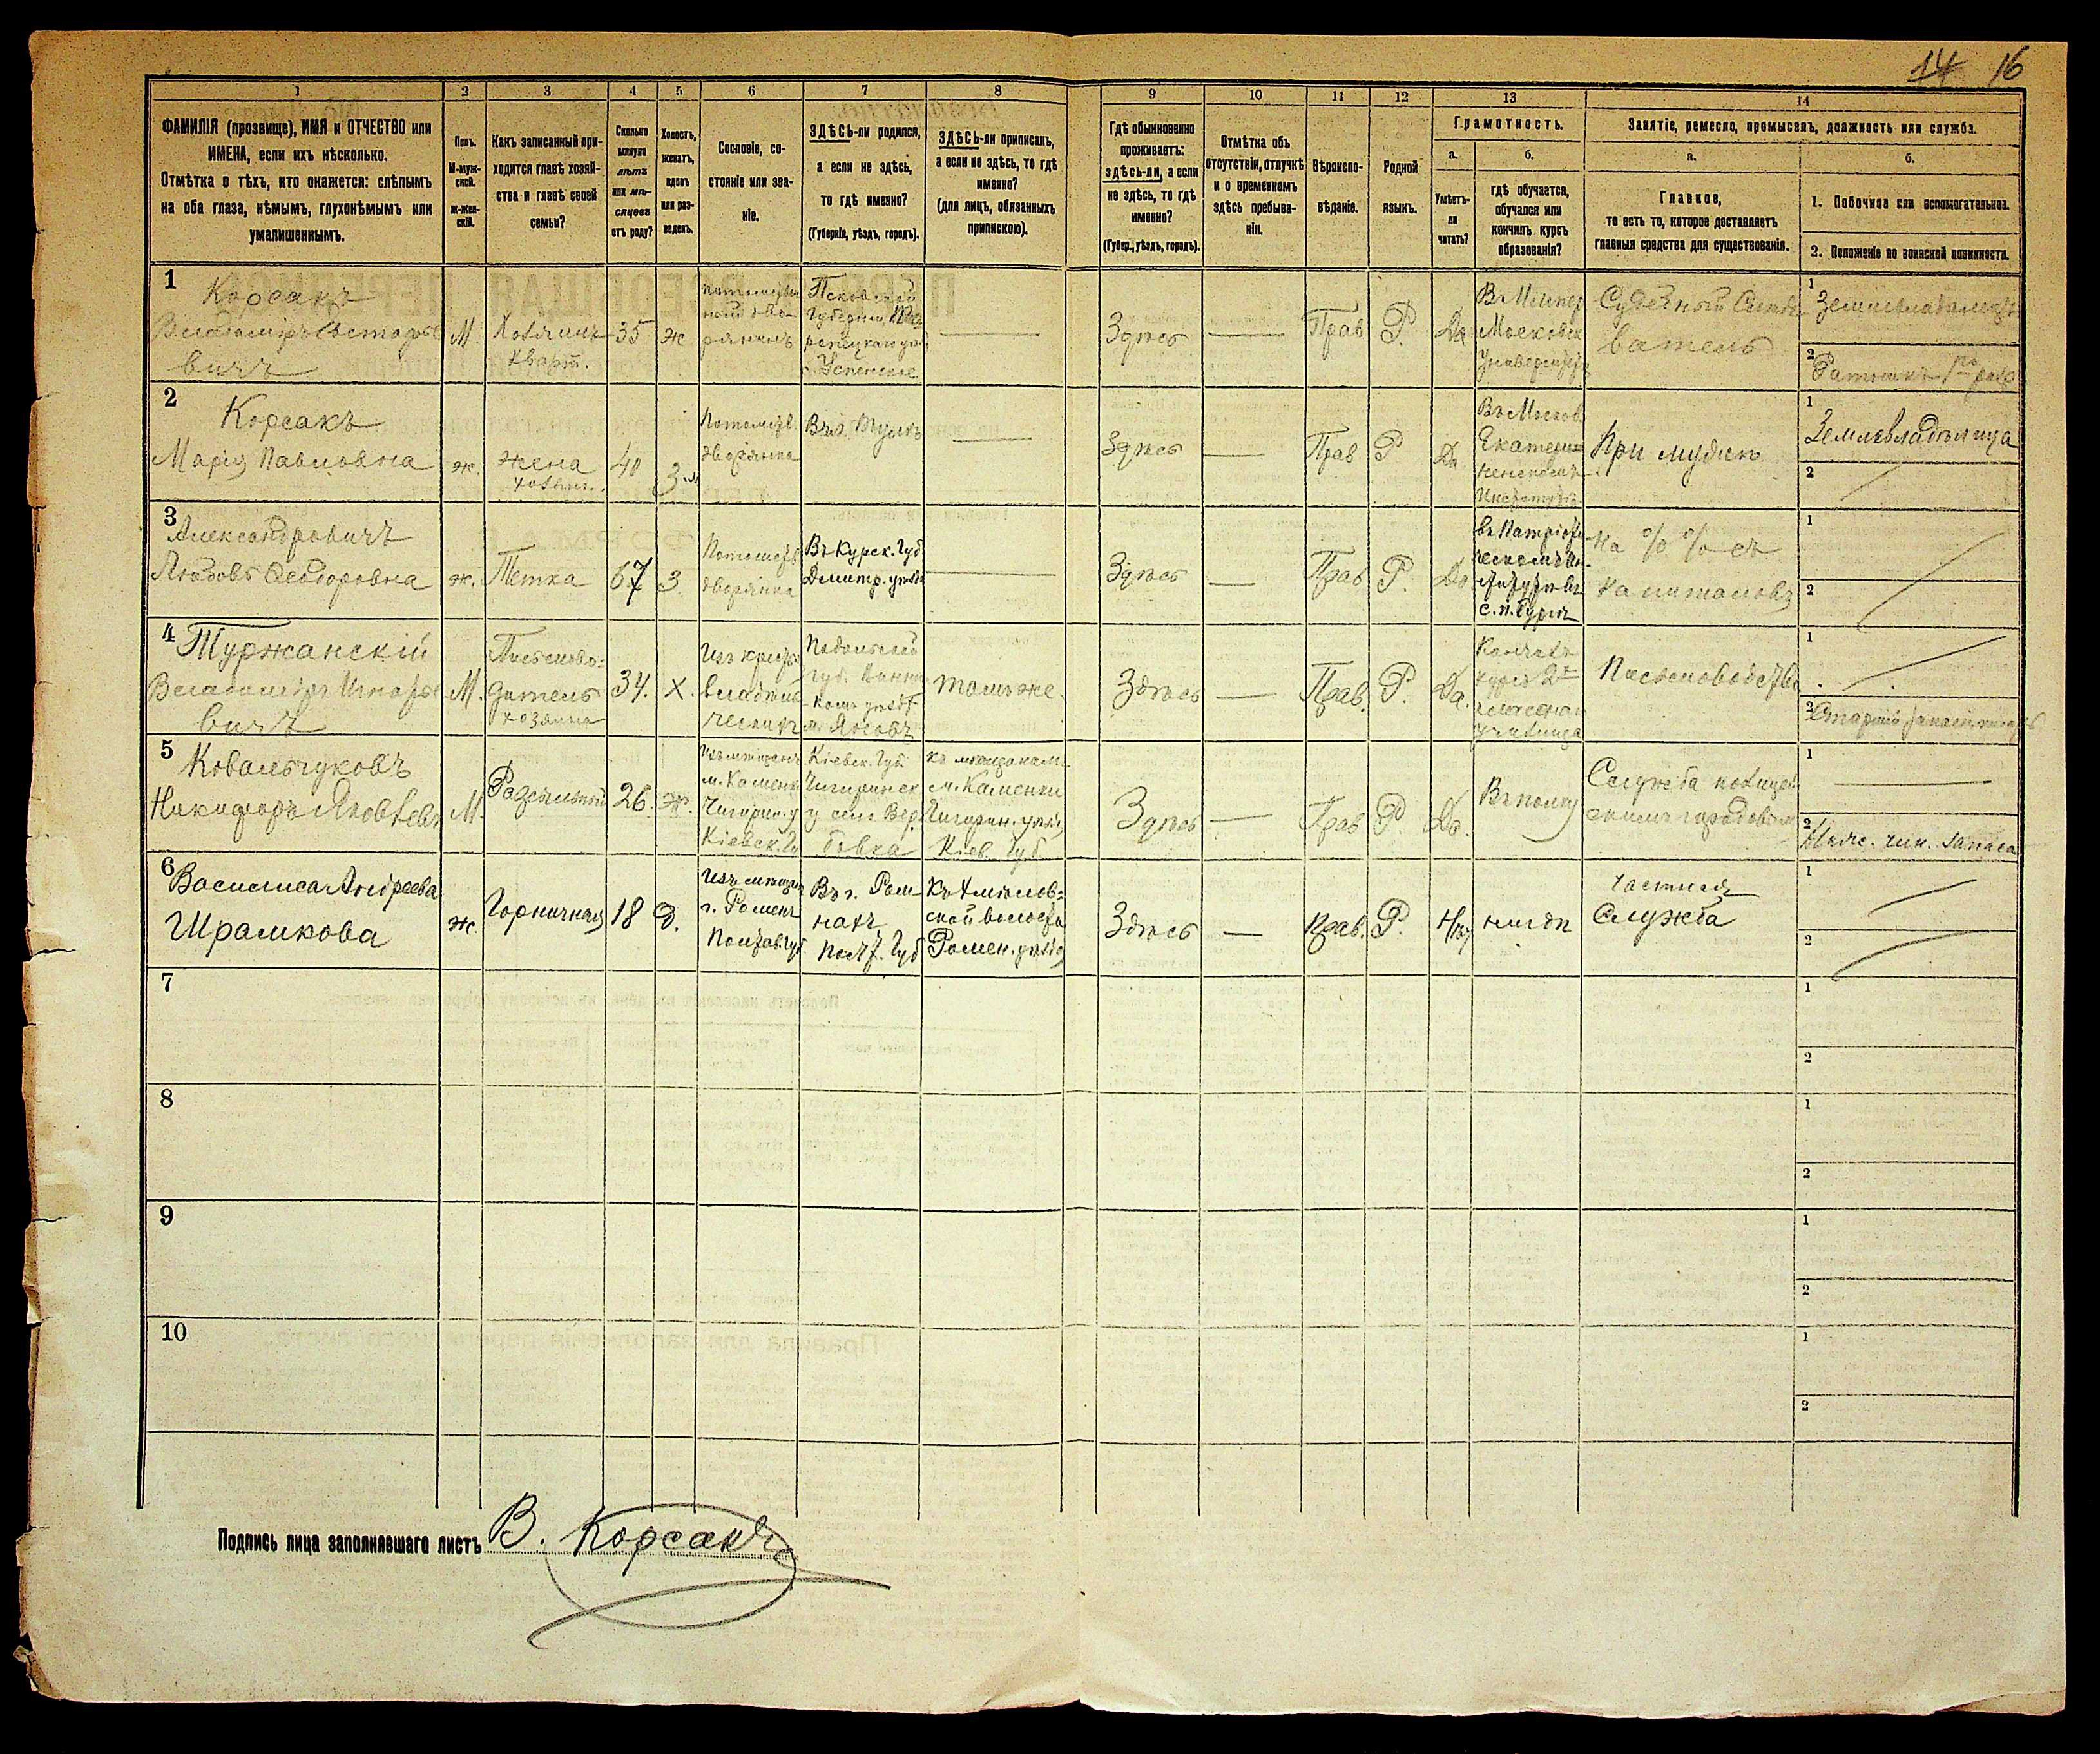 14 16
1 2 3 4 5 6 7 8 9 10 11 12 13 14
ФАМИЛІЯ (прозвище), ИМЯ и ОТЧЕСТВО или
ИМЕНА, если ихъ нѣсколько.
Отмѣтка о тѣхъ, кто окажется: слѣпымъ
на оба глаза, нѣмымъ, глухонѣмымъ или
умалишеннымъ.
Полъ.
М-муж-
ской.
ж-жен-
скій.
Какъ записанный при-
ходится главѣ хозяй-
ства и главѣ своей
семьи?
Сколько
минуло
лѣтъ
или мѣ-
сяцевъ
отъ роду?
Холостъ,
женатъ,
вдовъ
или раз-
веденъ.
Сословіе, со-
стояніе или зва-
ніе.
ЗДѢСЬ-ли родился,
а если не здѣсь,
то гдѣ именно?
(Губернія, уѣздъ, городъ).
ЗДѢСЬ-ли приписанъ,
а если не здѣсь, то гдѣ
именно?
(для лицъ, обязанныхъ
припискою).
Гдѣ обыкновенно
проживаетъ:
здѣсь-ли, а если
не здѣсь, то гдѣ
именно?
(Губер., уѣздъ, городъ).
Отмѣтка объ
отсутствіи, отлучкѣ
и о временномъ
здѣсь пребыва-
ніи.
Вѣроиспо-
вѣданіе.
Родной
языкъ.
Грамотность.
а. б.
Умѣетъ-
ли
читать?
гдѣ обучается,
обучался или
кончилъ курсъ
образованія?
Занятіе, ремесло, промыселъ, должность или служба.
а. б.
Главное,
то есть то, которое доставляетъ
главныя средства для существованія.
1. Побочное или вспомогательное.
2. Положеніе по воинской повинности.
1
Корсакъ
Владиміръ
вичъ
М.
Хозяинъ
кварт.
35
ж
Псковской
Губерніи
Успенское
Здѣсь
Прав
Р.
Да
Московск
Университ
Судебный
ватель
1
2
2
Корсакъ
Марія Павловна
ж.
жена
хозяин.
40
З
Потомств.
дворянка
Въ г. Тулѣ
Здѣсь
Прав
Р
Да
Въ Москов.
При мужѣ
1
Землевладѣлица
2
3
Александровичъ
Любовь Ѳедоровна
ж.
Тетка
67
З.
Потомств
дворянка
Въ Курск. Губ.
Дмитр. уѣзд
Здѣсь
Прав
Р.
Да
въ Патріоти
ческомъ Ин-
ститутѣ въ
С. П. Бургѣ
На % % съ
капиталовъ
1
2
4
Туржанскій
М.
Письмово-
дитель
хозяина
34.
х.
Подольской
Губ.
тамъ же.
Здѣсь
Прав.
Р.
Да.
училища
Письмоводство
1
2
5
Ковальчуковъ
Никифоръ Яковлев
М.
Разсыльный
26.
ж.
Чигирин. у
Кіевск. Гу
Кіевск. Губ.
Чигиринск
у село Вер
бовка
къ мѣщанамъ
м. Каменки
Чигирин. уѣзда
Кіев. Губ.
Здѣсь
Прав
Р
Да.
Въ полку
Служба полицей
скимъ городовымъ
1
2
Нижн. чин. запаса
6
Василиса Андреева
Шрамкова
ж.
Горничная
18
д.
Изъ мѣщан
г. Роменъ
Полтав. Губ
Въ г. Ром-
нахъ
Полт. Губ
ской волости
Ромен. уѣзда
Здѣсь
Прав.
Р.
Нѣт
нигдѣ
Частная
Служба
1
2
7
1
2
8
1
2
9
1
2
10
1
2
Подпись лица заполнявшаго листъ В. Корсакъ